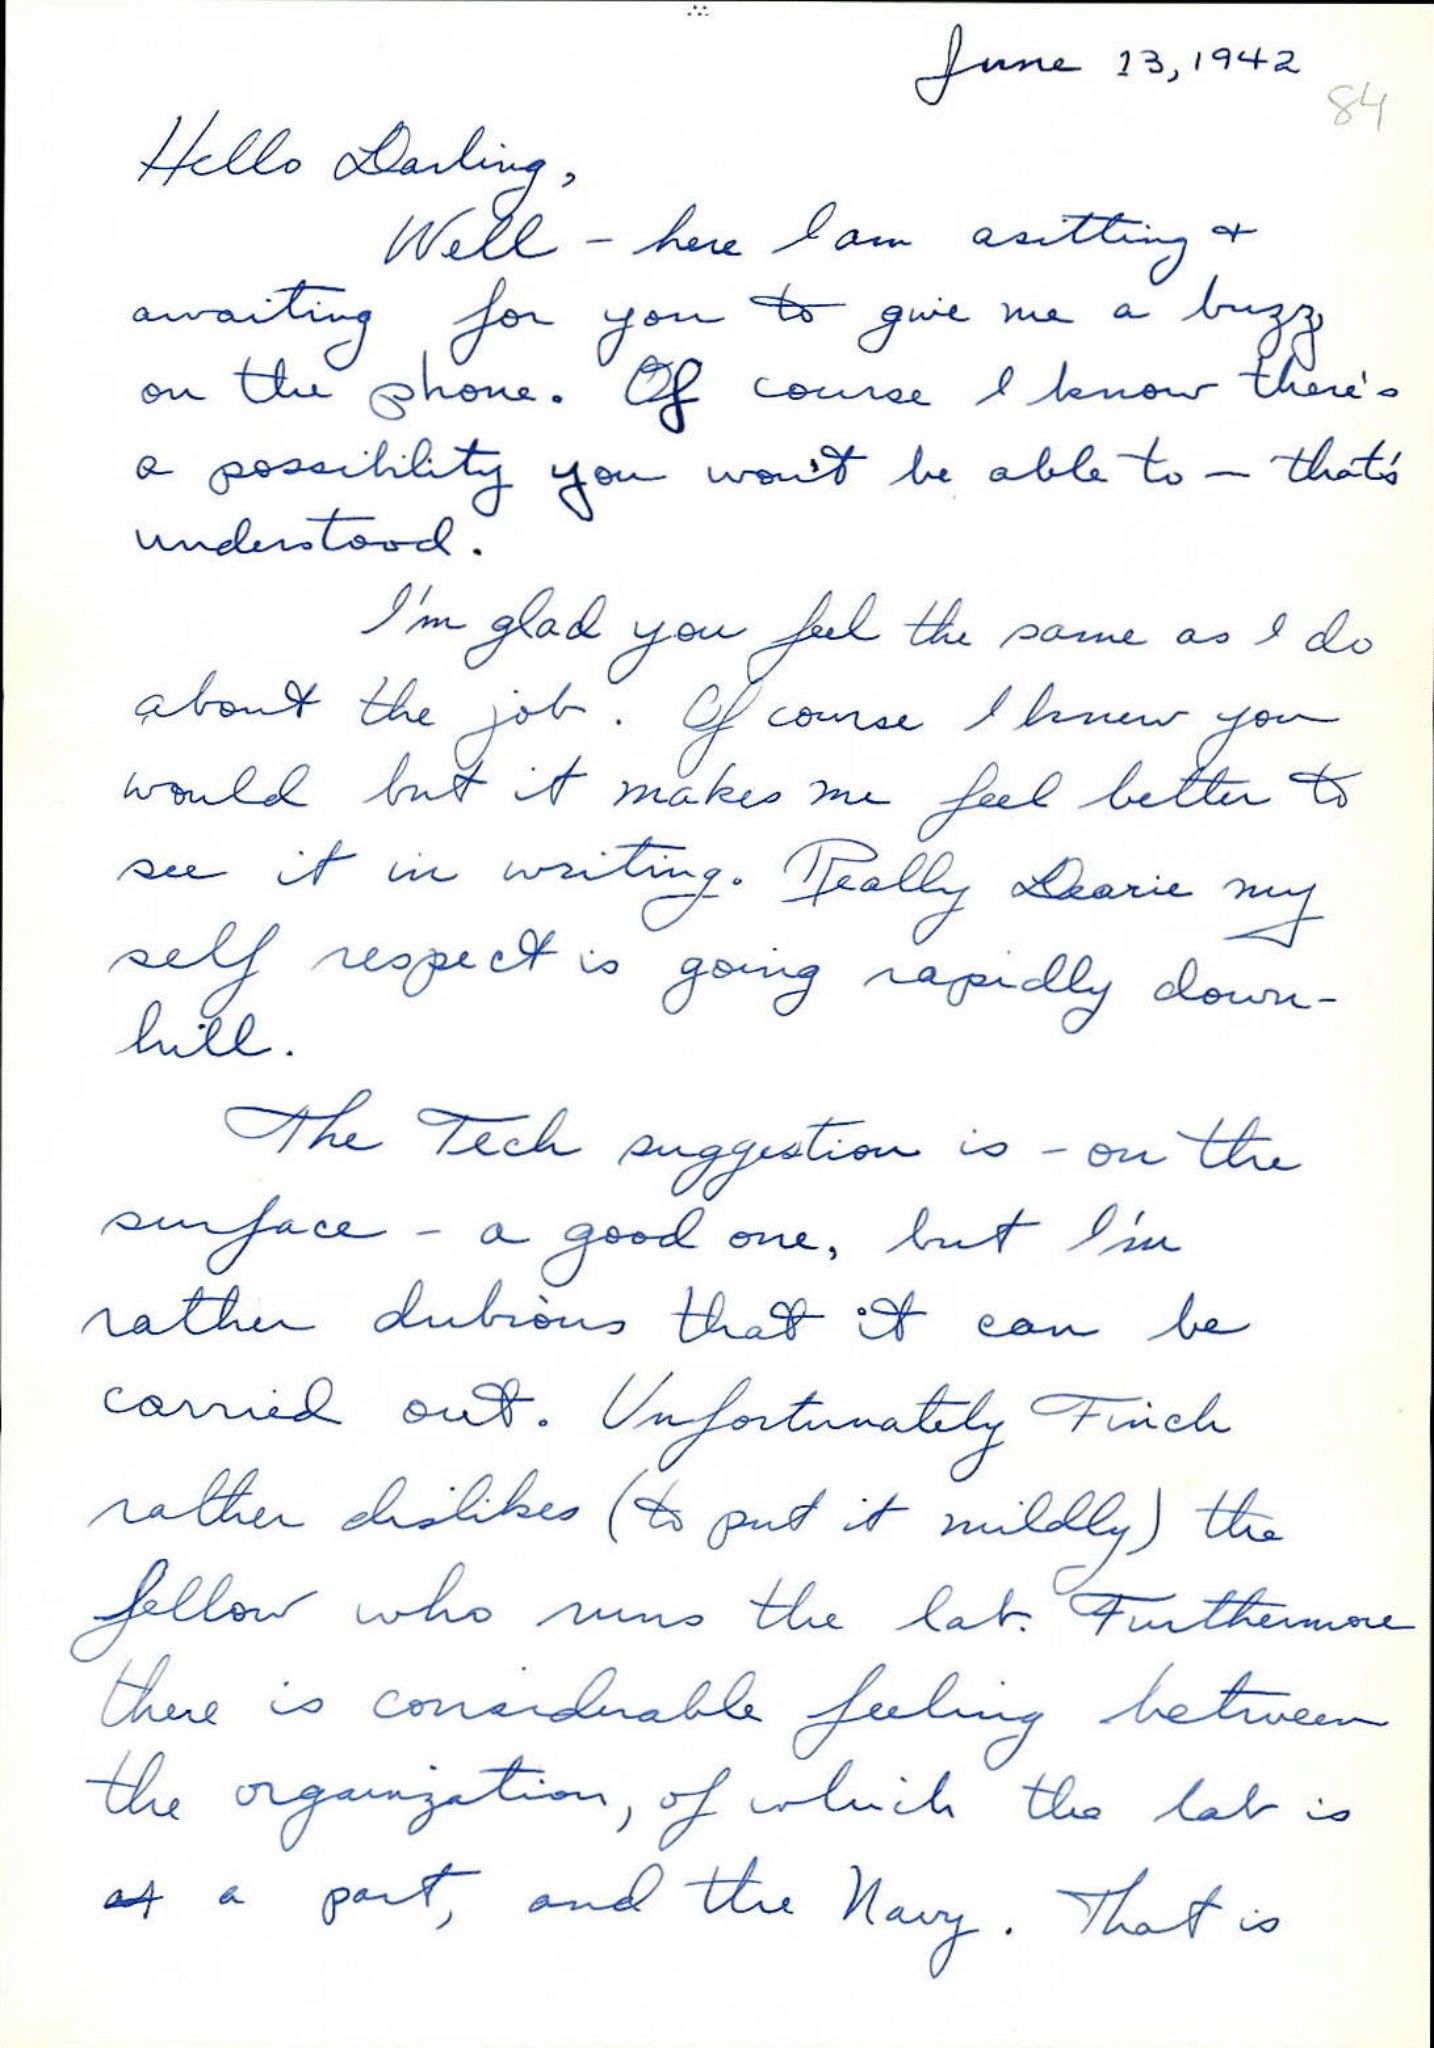 June 13, 1942
84
Hello Darling,
Well – here I am asitting +
awaiting for you to give me a buzz
on the phone. Of course I know there's
a possibility you won't be able to – that's
understood.
I'm glad you feel the same as I do
about the job. Of course I knew you
would but it makes me feel better to
see it in writing. Really Dearie my
self respect is going rapidly down-
hill.
The Tech suggestion is – on the
surface – a good one, but I'm
rather dubious that it can be
carried out. Unfortunately Finch
rather dislikes (to put it mildly) the
fellow who runs the lab. Furthermore
there is considerable feeling between
the organization, of which the lab is
a part, and the Navy. That is